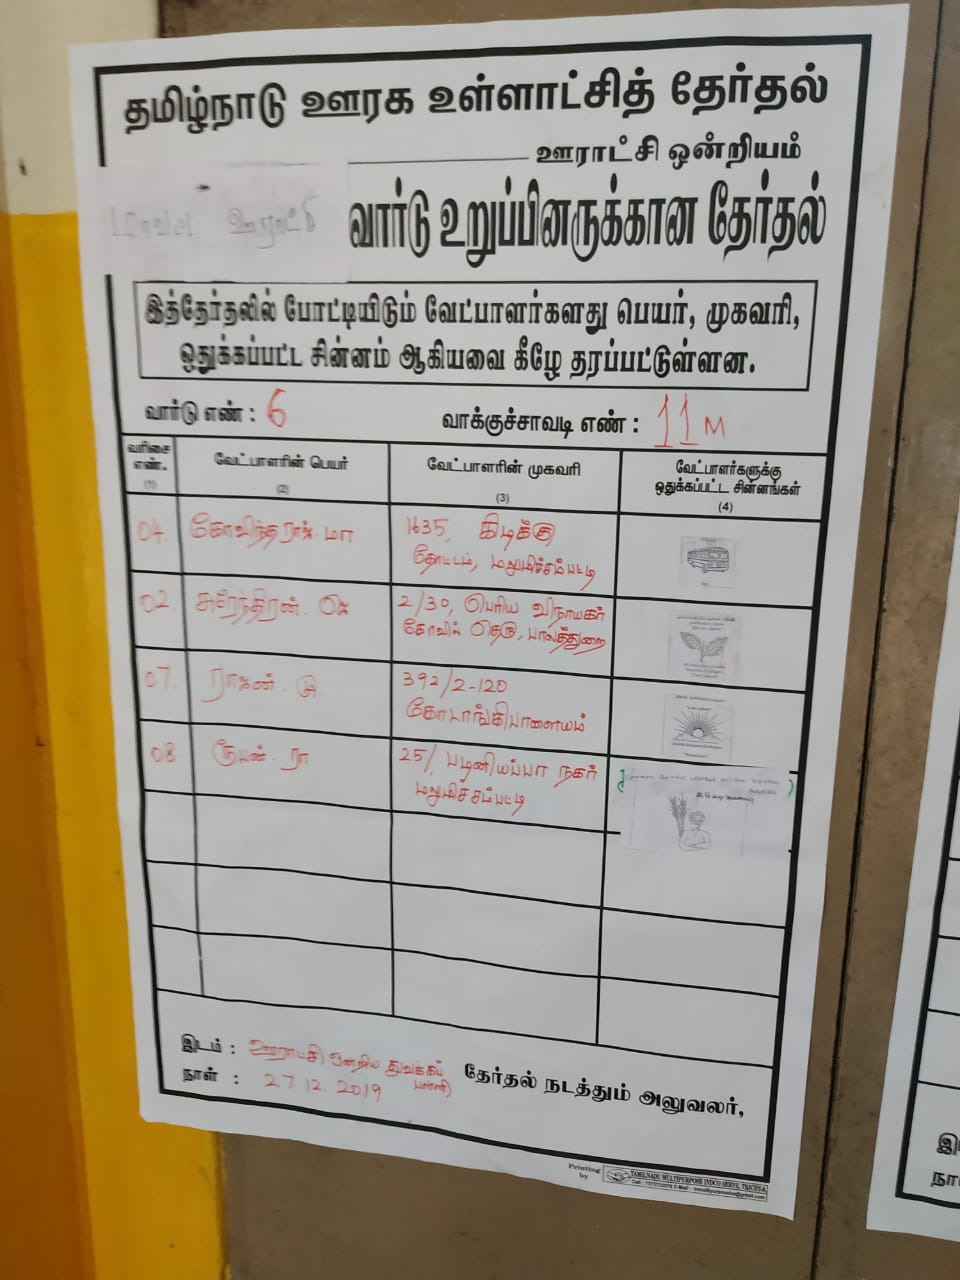 தமிழ்நாடு ஊரக உள்ளாட்சித் தேர்தல்
ஊராட்சி ஒன்றியம்
மாவட்ட ஊராட்சி வார்டு உறுப்பினருக்கான தேர்தல்
இத்தேர்தலில் போட்டியிடும் வேட்பாளர்களது பெயர், முகவரி,
ஒதுக்கப்பட்ட சின்னம் ஆகியவை கீழே தரப்பட்டுள்ளன.
வார்டு எண் : 6 வாக்குச்சாவடி எண் : 11 M
வரிசை எண். (1) வேட்பாளரின் பெயர் (2) வேட்பாளரின் முகவரி (3) வேட்பாளர்களுக்கு ஒதுக்கப்பட்ட சின்னங்கள் (4)
04. கோவிந்தராஜ். மா 1635, கிழக்கு
தோட்டம், மலுமிச்சம்பட்டி
02. சுரேந்திரன். 2/30, பெரிய விநாயகர்
கோவில் தெரு, பாலத்துறை
07. ராஜன். 392/2-120
கோடாங்கிபாளையம்
08. ரா 25/, பழனியப்பா நகர்
மலுமிச்சம்பட்டி
இடம் : ஊராட்சி ஒன்றிய துவக்கப் பள்ளி
நாள் : 27 12. 2019 தேர்தல் நடத்தும் அலுவலர்,
Printing by TAMILNADU MULTIPURPOSE INDCO SERVE, TRICHY-8.